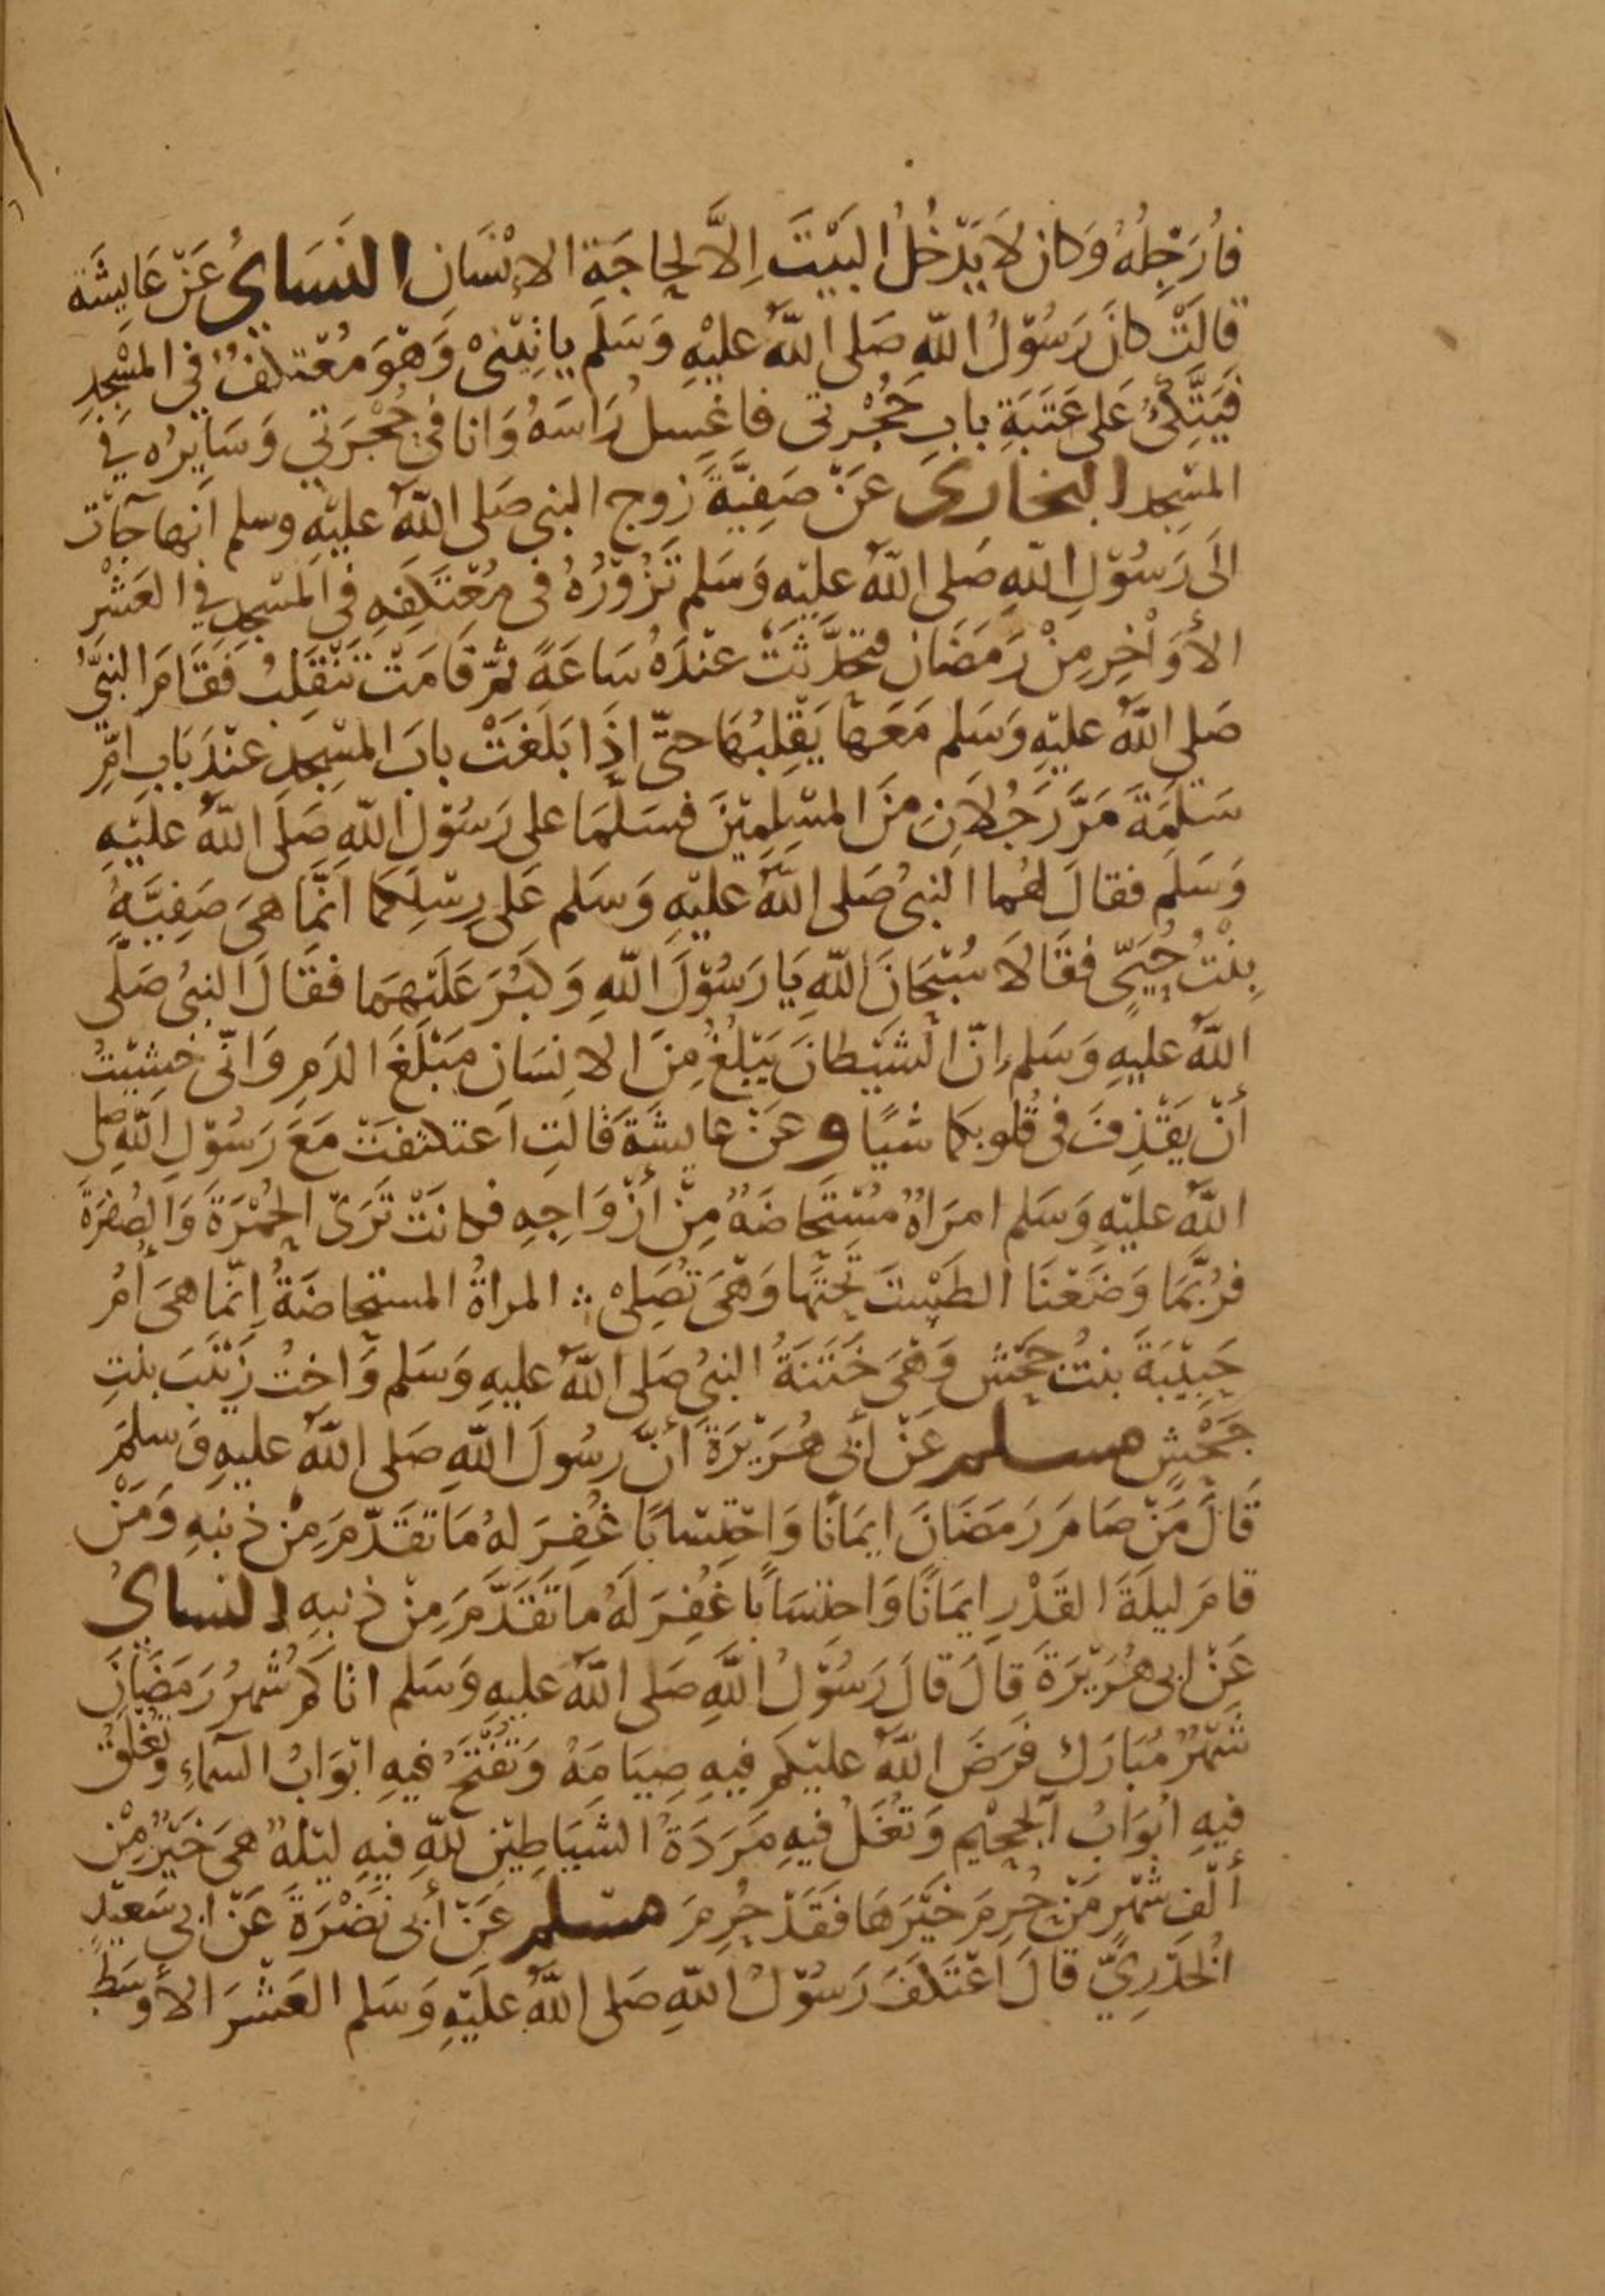 فأُرَجّلُهُ وَكان لاَ يَدْخُلُ البَيْتَ اِلاَّ لحِاجَةِ الاِنْسَان النَسَايُ عَنْ عَايشَة
قالَتْ كانَ رَسُوْلُ اللّهِ صَلى اللّهُ عليْهِ وَسَلَم ياتِيْنىْ وَهْوَ مُعْتكفُ فى المسْجِدِ
فيَتَّكئُ عَلى عَتَبَةِ بابِ حُجْرتى فاغسِلُ رَاسَهُ وَانا فى حُجْرَتي وَسَايرُه في
المسْجد البخارى عَنْ صَفِيَّةَ زوج النبى صَلى اللّهُ عليْهِ وسلم انها جآت
الَى رَسُوْلِ اللّهِ صَلى اللّهُ عليْهِ وَسَلم تَزُوْرُهُ فى مُعْتَكَفِهِ فى المسْجِدِ في العَشْرِ
الأَوَاخِرِ مِنْ رَمَضَان فتحدَّثَتْ عنْدَهُ سَاعَةً ثمّ قَامَتْ تَنْقَلِبُ فَقَامَ النبىُّ
صَلى اللّهُ عليْهِ وَسَلم مَعَهَا يَقْلِبُهَا حتىّ اِذَا بَلَغَتْ بابَ المسْجِدِ عنْدَ بَابِ اُمِّ
سَلَمَةَ مَرَّ رَجُلاَنِ مِنَ المسْلِمِيْنَ فسَلّمَا على رَسُوْلِ اللّهِ صَلَى اللّهُ عليْهِ
وَسَلَم فقالَ لهُما النبىُ صَلى اللّهُ عليْهِ وَسَلم عَلى رِسْلِكمَا اَنَّما هىَ صَفِيَّةُ
بِنْتُ حُيَىٍّ فقَالاَ سُبْحَانَ اللّهِ يَا رَسُوْلَ اللّهِ وَكبُرَ عَلَيْهمَا فقَالَ النبىُ صَلَّى
اللّهُ عليهِ وَسَلم اِنّ الشَيْطانَ يَبْلُغُ مِنَ الانسَانِ مَبْلَغَ الدَمِ وَانّى خشِيْتُ
أَنْ يَقْذِفَ فى قُلوبكمَا شيًا وعَنْ عايشَةَ قَالتِ اَعتكَفَتْ مَعَ رَسُوْلِ اللّهِ صلى
اللّهُ عليْهِ وَسَلم امرَاةٌ مُسْتَحَاضَةٌ مِنْ أَزْوَاجِهِ فكانَتْ تَرَىَ الحُمْرَةَ وَالصُفرَةَ
فرُبَّمَا وَضَعْنَا الطَسْتَ تَحْتَهَا وَهْىَ تُصَلى ؞ المراةُ المستحاضَةُ اِنّما هىَ أُمُ
حَبِيْبَةَ بنْتُ جَحْش وَهْىَ خَتَنَةُ النبىُ صَلى اللّهُ عليهِ وَسَلم وَاختُ زَيْنَبَ بنْتِ
جَحْشٍ مسلم عَنْ أبى هُرَيْرَةَ أَنَّ رسُولَ اللّهِ صَلى اللّهُ عليهِ وَسلمَ
قَالَ مَنْ صَامَ رَمَضَانَ ايمَانًا وَاحْتِسَابًا غُفِرَ لهُ مَا تقَدّمَ مِنْ ذنبهِ وَمَنْ
قامَ ليلَةَ القَدْرِ ايمَانًا وَاحتسَابًا غُفِرَ لَهُ مَا تَقَدَّمَ مِنْ ذنبهِ النساىُ
عَنْ ابى هُرَيْرَةَ قالَ قالَ رَسُوْلُ اللَّهِ صَلى اللّهُ عَليهِ وَسَلم اتاكمْ شَهْرُ رَمَضَانَ
شَهْرٌ مُبَارَكٌ فَرَضَ اللّهُ عليْكمْ فيهِ صِيَامَهُ وَتُفْتَحُ فيهِ ابْوَابُ السمآءِ وَتُغْلَقُ
فيهِ ابْوَابُ الجحِيْم وَتُغَلُ فيهِ مَرَدَةُ الشيَاطِيْنِ للّهِ فيهِ ليْلَةٌ هىَ خَيْرٌ مِنْ
أَلْفِ شَهْرٍ مَنْ حُرِمَ خَيْرَهَا فَقَدْ حُرِمَ مسْلم عَنْ أبى نَضْرَةَ عَنْ ابى سَعيْدٍ
الخُدْرِيّ قَالَ اعْتَكَفَ رَسُوْلُ اللّهِ صَلى اللّهُ عليْهِ وَسَلم العَشْرَ الأَوْسَطَ